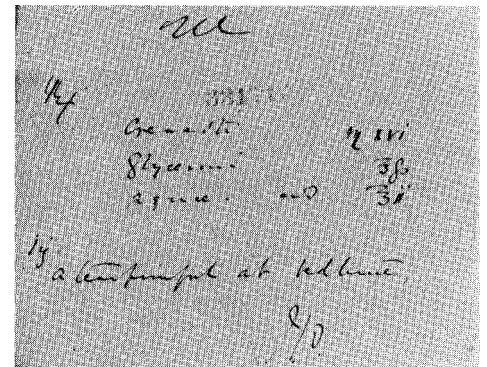 Rx
Creasoti ♏ xvi
Glycerini ʒfs
aquae ad ℥ii
a teaspoonful at bedtime